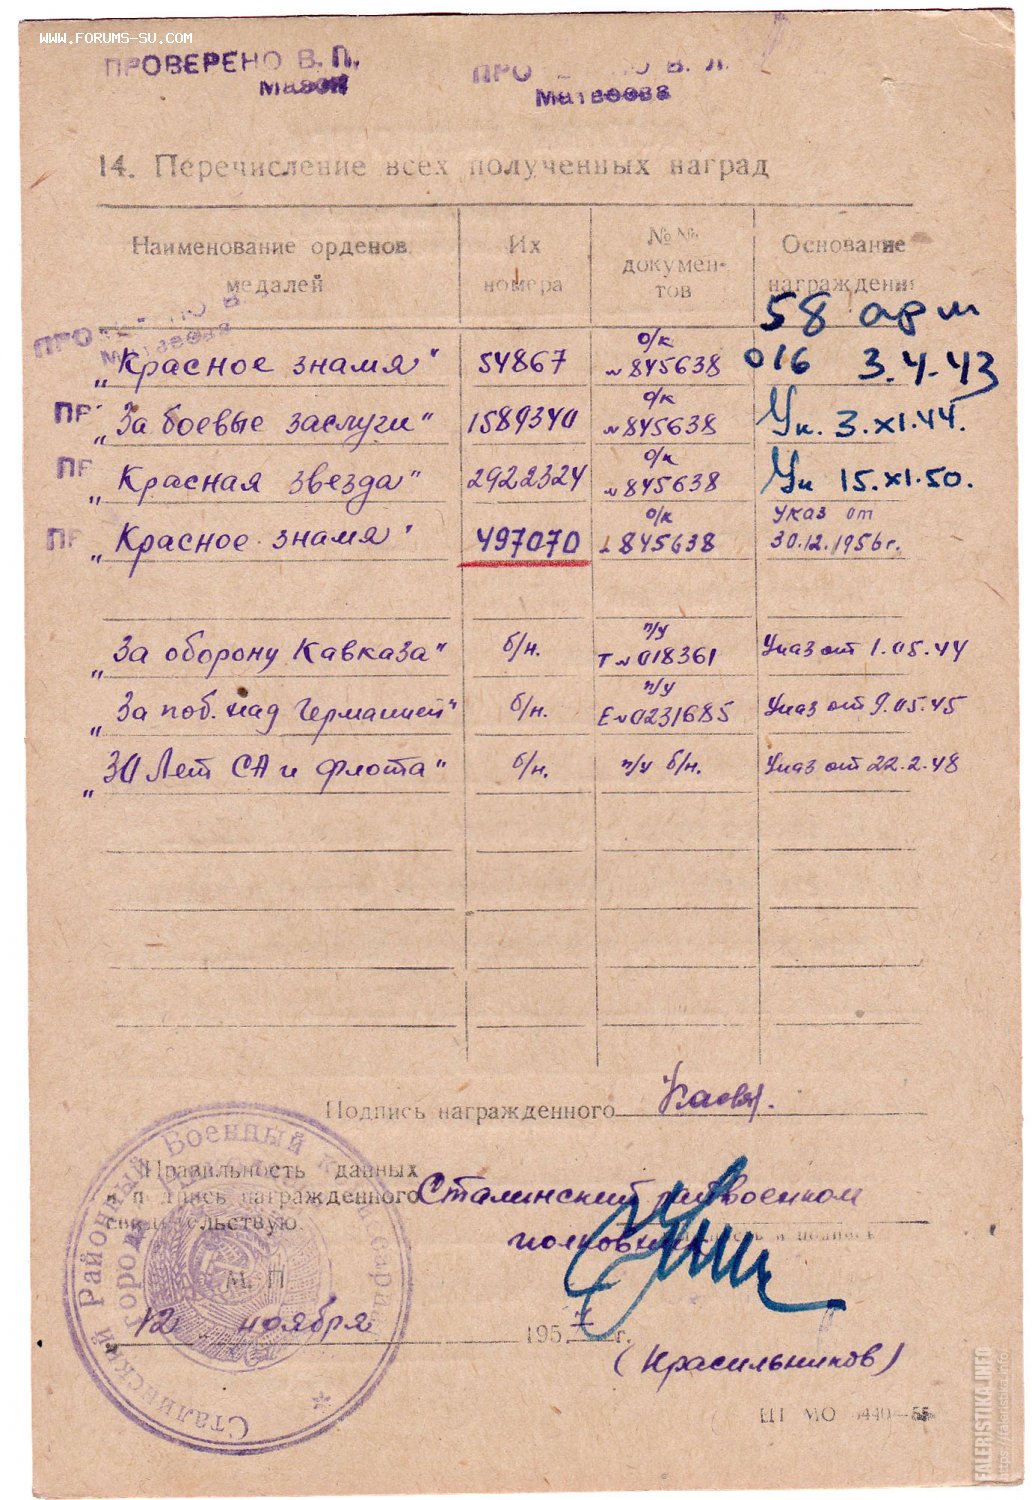 WWW.FORUMS-SU.COM
ПРОВЕРЕНО В. П.
Матвеева
14. Перечисление всех полученных наград
Наименование орденов, медалей
Их номера
№№ документов
Основание награждения
58 арм
"Красное знамя" 54867 о/к №845638 016 3.4.43
"За боевые заслуги" 1589340 о/к №845638 Ук. 3.XI.44.
"Красная звезда" 2922324 о/к №845638 Ук 15.XI.50.
"Красное знамя" 497070 о/к 845638 Указ от 30.12.1956г.
"За оборону Кавказа" б/н. п/у Т №018361 Указ от 1.05.44
"За поб. над Германией" б/н. п/у Е №0231685 Указ от 9.05.45
"30 Лет СА и флота" б/н. п/у б/н. Указ от 22.2.48
Подпись награжденного
Правильность данных
и подпись награжденного Сталинский райвоенком
свидетельствую полковник
М. П.
Сталинский Районный Военный Комиссариат
12 ноября 1957 г.
(Красильников)
FALERISTIKA.INFO
https://faleristika.info/